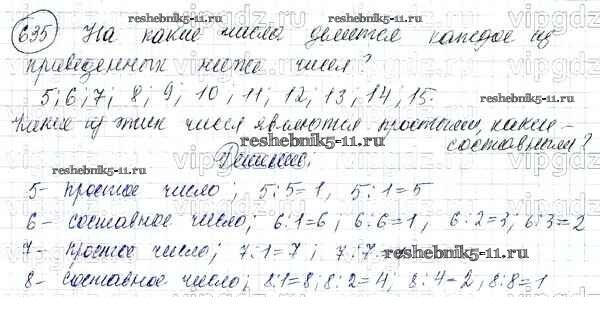 635 На какие числа делится каждое из
reshebnik5-11.ru
приведенных ниже чисел?
5; 6; 7; 8; 9; 10; 11; 12; 13; 14; 15.
Какие из этих чисел являются простыми, какие –
reshebnik5-11.ru
составными?
Решение:
5- простое число; 5:5=1, 5:1=5
6- составное число; 6:1=6; 6:6=1, 6:2=3; 6:3=2
7- простое число; 7:1=7; 7:7
reshebnik5-11.ru
8- составное число; 8:1=8; 8:2=4; 8:4=2, 8:8=1